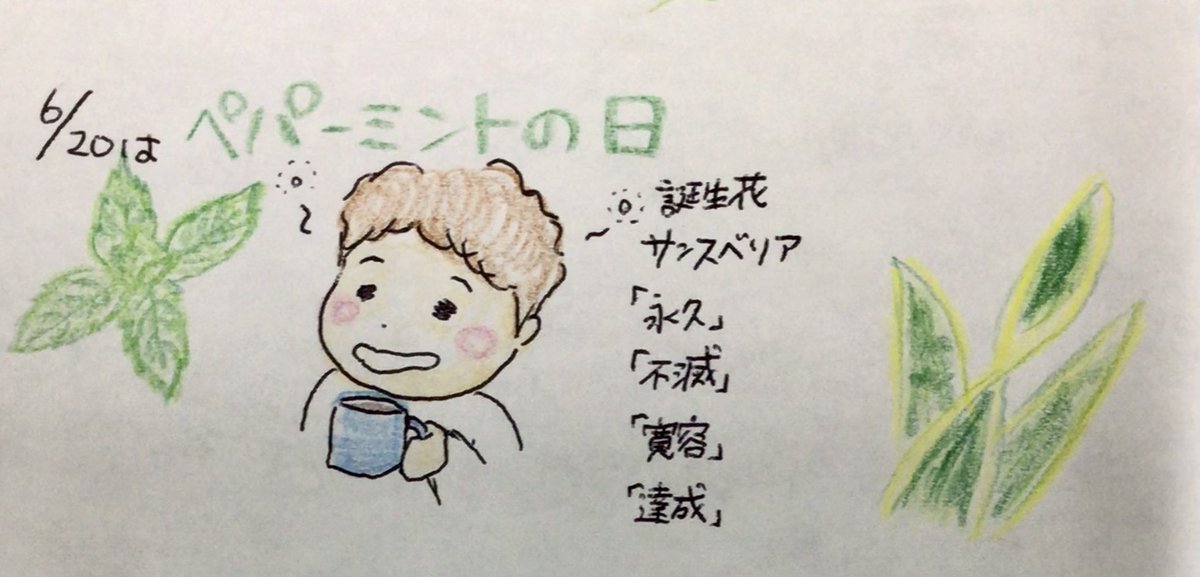 6/20は ペパーミントの日
誕生花
サンスベリア
「永久」
「不滅」
「寛容」
「達成」